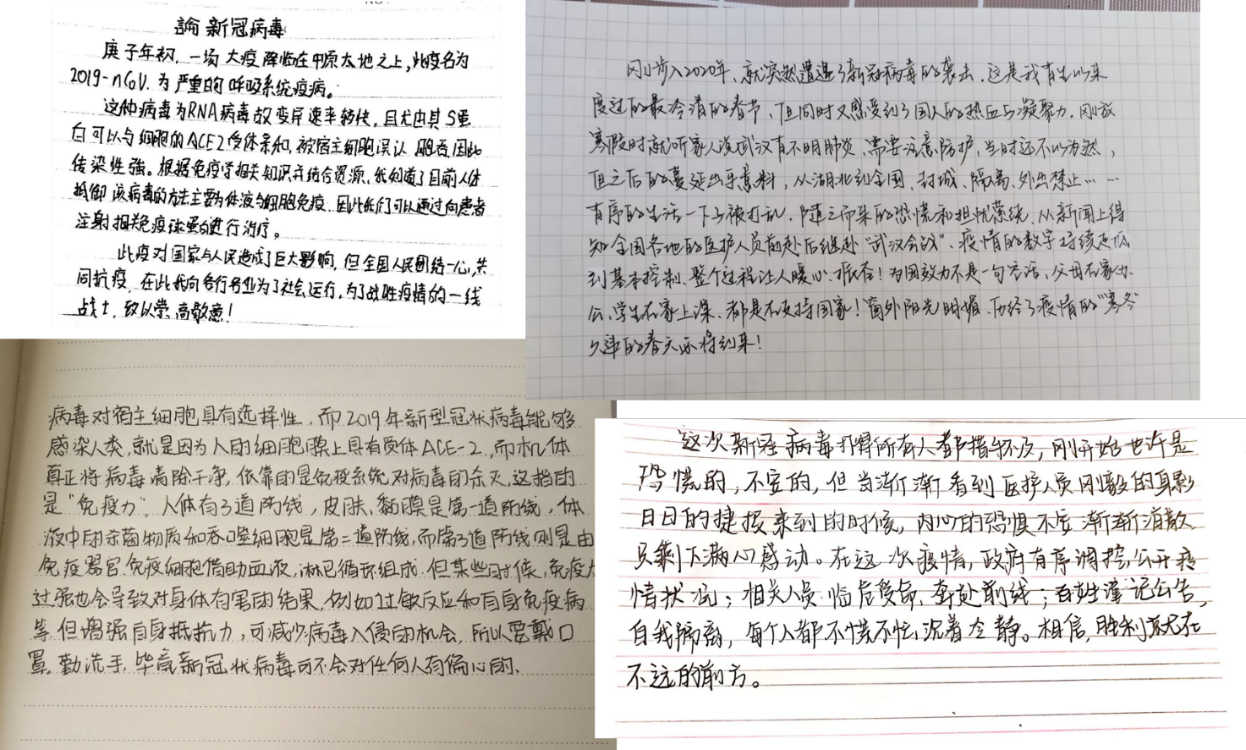 論新冠病毒
庚子年初，一场大疫降临在中原大地之上，此疫名为
2019-nCoV.为严重的呼吸系统疫病。
这种病毒为RNA病毒故变异速率较快，且尤由其S蛋
白可以与细胞的ACE2受体亲和，被宿主细胞误认 胞吞因此
传染性强。根据免疫学相关知识并结合资源，我知道了目前人体
抵御该病毒的方法主要为体液与细胞免疫，因此我们可以通过向患者
注射相关免疫球蛋白进行治疗。
此疫对国家与人民造成了巨大影响，但全国人民团结一心，共
同抗疫，在此我向各行各业为了社会运行，为了战胜疫情的一线
战士，致以崇高敬意！
刚步入2020年，就突然遭遇了新冠病毒的袭击，这是我有生以来
度过的最冷清的春节，但同时又感受到了国人的热血与凝聚力。刚放
寒假时就听家人说武汉有不明肺炎，需要注意防护，当时还不以为然，
但之后的蔓延出乎意料，从湖北到全国，封城、隔离、外出禁止……
有序的生活一下子被打乱，随之而来的恐慌和担忧萦绕，从新闻上得
知全国各地的医护人员前赴后继赴“武汉会战”，疫情的数字持续走低
到基本控制，整个过程让人暖心、振奋！为国效力不是一句空话，父母在家办
公，学生在家上课，都是在支持国家！窗外阳光明媚，历经了疫情的“寒冬”
久违的春天必将到来！
病毒对宿主细胞具有选择性，而2019年新型冠状病毒能够
感染人类，就是因为人的细胞膜上具有受体ACE-2，而机体
真正将病毒清除干净，依靠的是免疫系统对病毒的杀灭，这指的
是“免疫力”。人体有3道防线，皮肤、黏膜是第一道防线，体
液中的杀菌物质和吞噬细胞是第二道防线，而第3道防线则是由
免疫器官免疫细胞借助血液，淋巴循环组成。但某些时候，免疫力
过强也会导致对身体有害的结果，例如过敏反应和自身免疫病
等。但增强自身抵抗力，可减少病毒入侵的机会，所以要戴口
罩，勤洗手，毕竟新冠状病毒可不会对任何人有偏心的.
这次新冠病毒打得所有人都措手不及，刚开始也许是
恐慌的，不安的，但当渐渐看到医护人员刚毅的身影
日日的捷报来到的时候，内心的恐惧不安渐渐消散
只剩下满心感动。在这次疫情，政府有序调控，公开疫
情状况；相关人员临危受命，奔赴前线；百姓谨记公告，
自我隔离，每个人都不慌不忙，沉着冷静。相信，胜利就在
不远的前方。